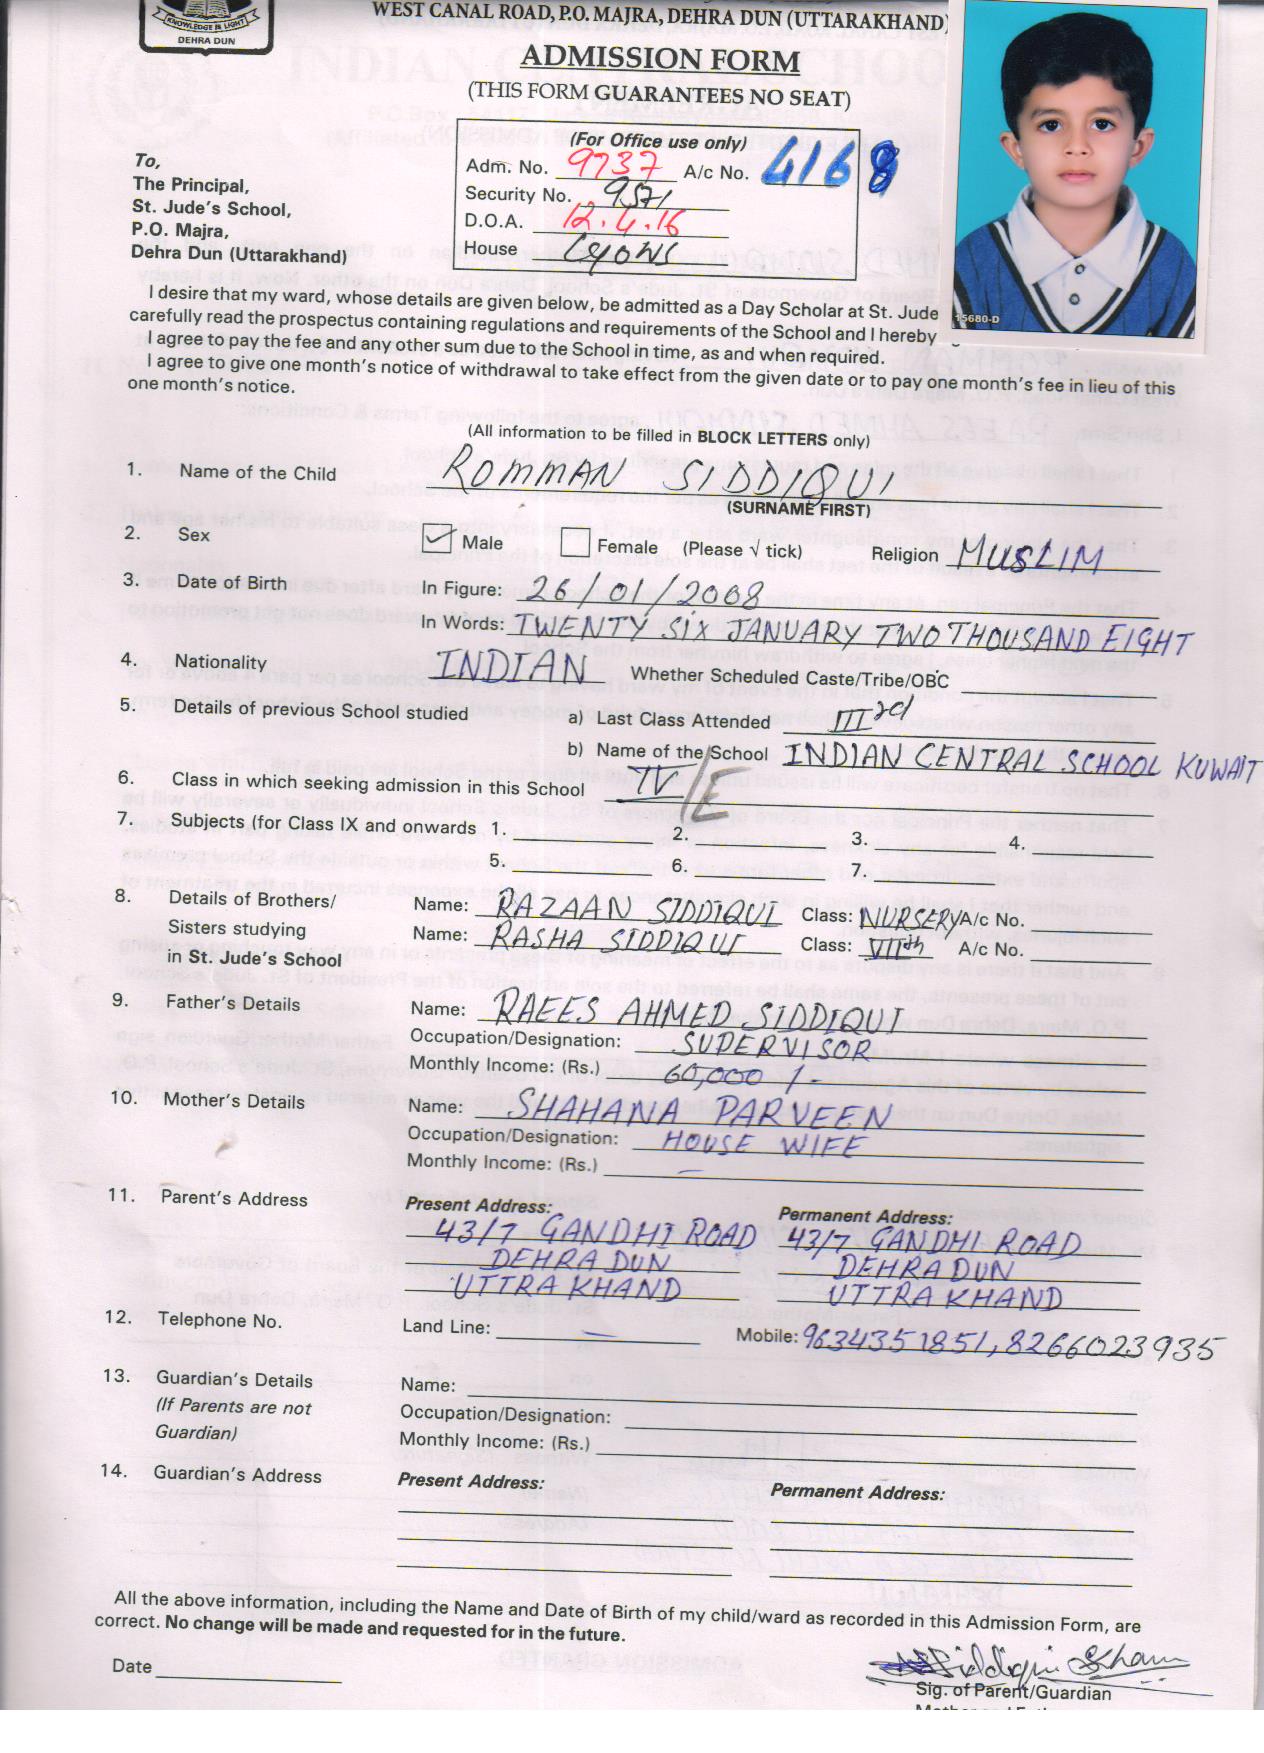 KNOWLEDGE IS LIGHT
DEHRA DUN
WEST CANAL ROAD, P.O. MAJRA, DEHRA DUN (UTTARAKHAND)
ADMISSION FORM
(THIS FORM GUARANTEES NO SEAT)
(For Office use only)
Adm. No. 9737 A/c No. 4168
Security No. 9571
D.O.A. 12.4.16
House Lyons
To,
The Principal,
St. Jude's School,
P.O. Majra,
Dehra Dun (Uttarakhand)
15680-D
I desire that my ward, whose details are given below, be admitted as a Day Scholar at St. Jude
carefully read the prospectus containing regulations and requirements of the School and I hereby
I agree to pay the fee and any other sum due to the School in time, as and when required.
I agree to give one month's notice of withdrawal to take effect from the given date or to pay one month's fee in lieu of this
one month's notice.
(All information to be filled in BLOCK LETTERS only)
1. Name of the Child ROMMAN SIDDIQUI
(SURNAME FIRST)
2. Sex Male Female (Please √ tick) Religion MUSLIM
3. Date of Birth In Figure: 26/01/2008
In Words: TWENTY SIX JANUARY TWO THOUSAND EIGHT
4. Nationality INDIAN Whether Scheduled Caste/Tribe/OBC
5. Details of previous School studied a) Last Class Attended III rd
b) Name of the School INDIAN CENTRAL SCHOOL KUWAIT
6. Class in which seeking admission in this School IV/E
7. Subjects (for Class IX and onwards 1. 2. 3. 4.
5. 6. 7.
8. Details of Brothers/ Name: RAZAAN SIDDIQUI Class: NURSERY A/c No.
Sisters studying Name: RASHA SIDDIQUI Class: VIIth A/c No.
in St. Jude's School
9. Father's Details Name: RAEES AHMED SIDDIQUI
Occupation/Designation: SUPERVISOR
Monthly Income: (Rs.) 60,000/-
10. Mother's Details Name: SHAHANA PARVEEN
Occupation/Designation: HOUSE WIFE
Monthly Income: (Rs.) —
11. Parent's Address Present Address: Permanent Address:
43/7 GANDHI ROAD 43/7 GANDHI ROAD
DEHRADUN DEHRADUN
UTTRAKHAND UTTRAKHAND
12. Telephone No. Land Line: — Mobile: 9634351851, 8266023935
13. Guardian's Details Name:
(If Parents are not Occupation/Designation:
Guardian) Monthly Income: (Rs.)
14. Guardian's Address Present Address: Permanent Address:
All the above information, including the Name and Date of Birth of my child/ward as recorded in this Admission Form, are
correct. No change will be made and requested for in the future.
Siddiqui
Date
Sig. of Parent/Guardian